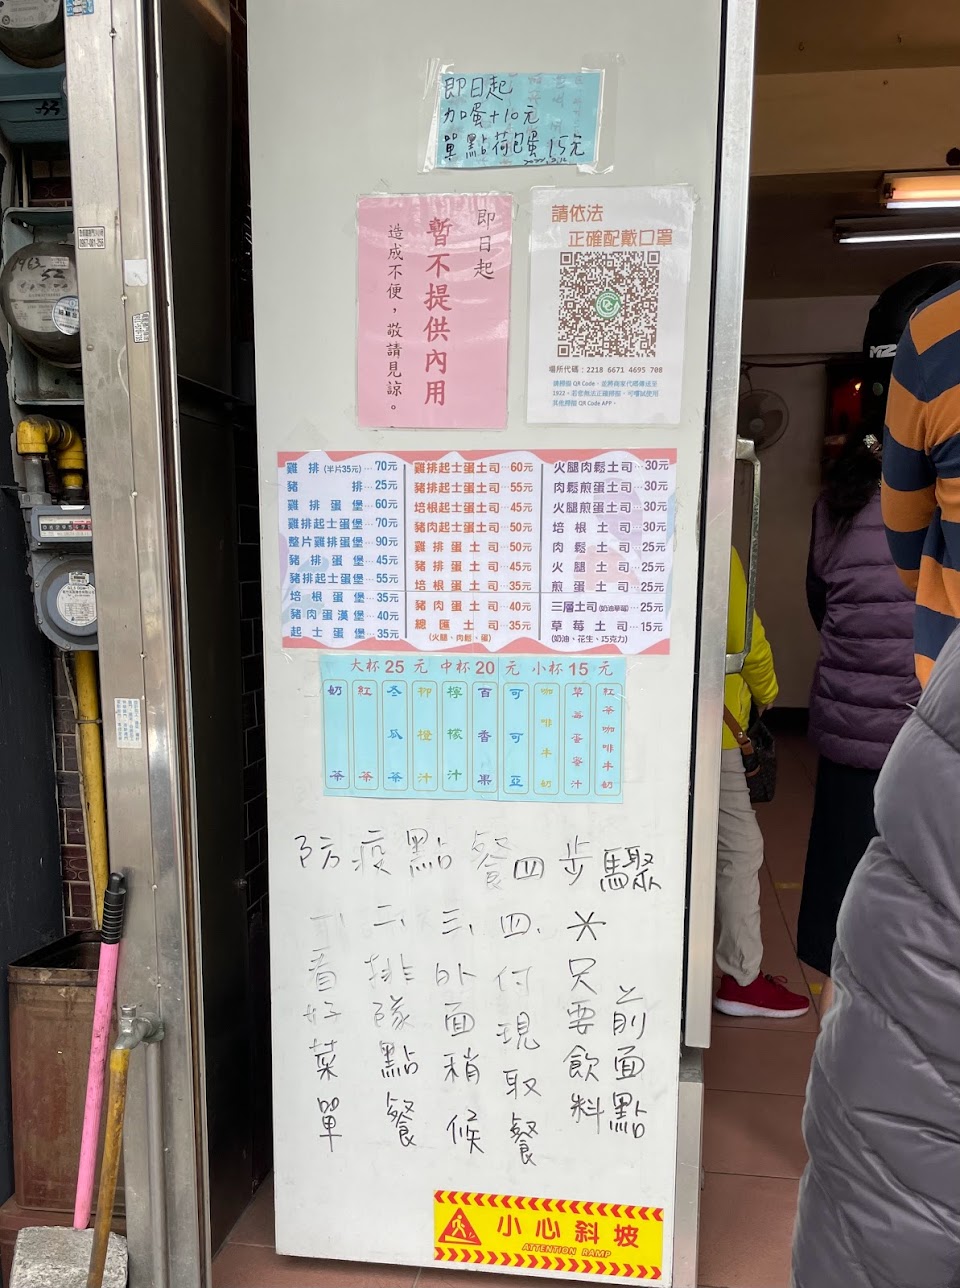 即日起
加蛋+10元
單點荷包蛋15元
即日起
暫不提供內用
造成不便，敬請見諒。
請依法
正確配戴口罩
場所代碼：2218 6671 4695 708
雞排(半片35元)…70元
豬排…25元
雞排蛋堡…60元
雞排起士蛋堡…70元
整片雞排蛋堡…90元
豬排蛋堡…45元
豬排起士蛋堡…55元
培根蛋堡…35元
豬肉蛋漢堡…40元
起士蛋堡…35元
雞排起士蛋土司…60元
豬排起士蛋土司…55元
培根起士蛋土司…45元
豬肉起士蛋土司…50元
雞排蛋土司…50元
豬排蛋土司…45元
培根蛋土司…35元
豬肉蛋土司…40元
總匯土司…35元
(火腿、肉鬆、蛋)
火腿肉鬆土司…30元
肉鬆煎蛋土司…30元
火腿煎蛋土司…30元
培根土司…30元
肉鬆土司…25元
火腿土司…25元
煎蛋土司…25元
三層土司(奶油草莓)…25元
草莓土司…15元
(奶油、花生、巧克力)
大杯25元 中杯20元 小杯15元
奶茶
紅茶
冬瓜茶
柳橙汁
檸檬汁
百香果
可可亞
咖啡牛奶
草莓蛋蜜汁
紅茶咖啡牛奶
防疫點餐四步驟
一、看好菜單
二、排隊點餐
三、外面稍候
四、付現取餐
※只要飲料
前面點
小心斜坡
ATTENTION RAMP